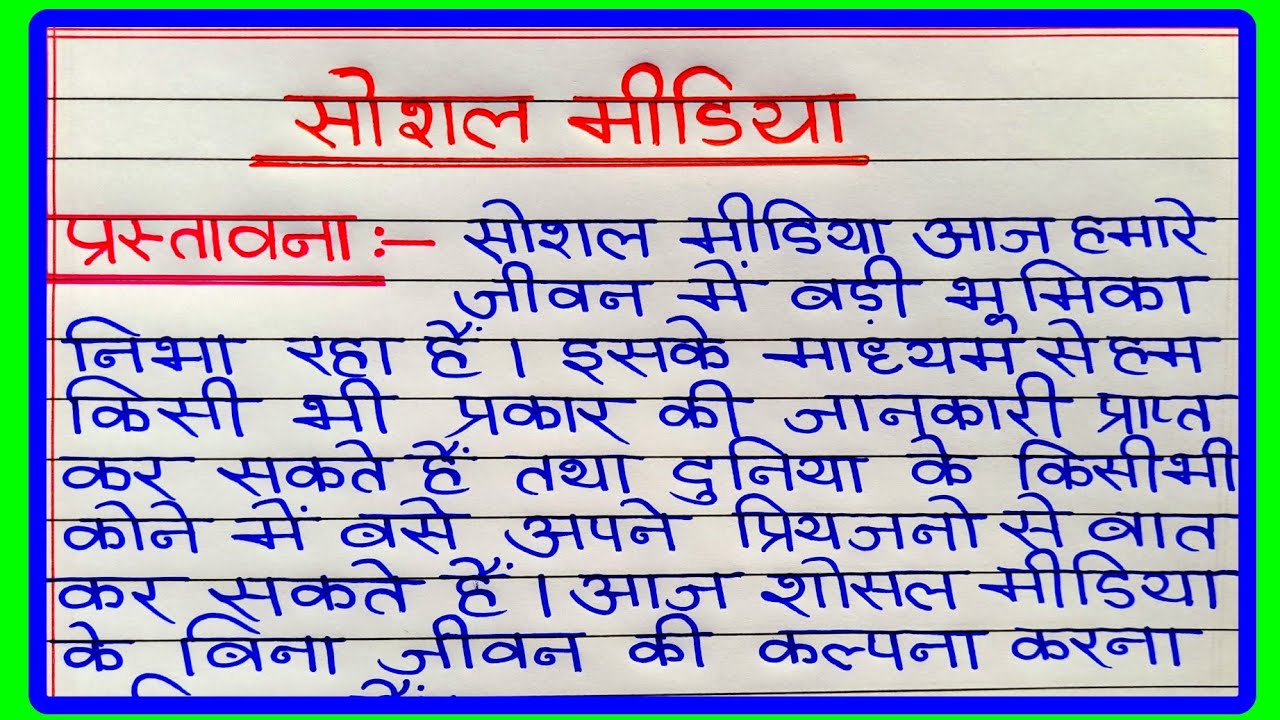 सोशल मीडिया
प्रस्तावना :- सोशल मीडिया आज हमारे
जीवन में बड़ी भूमिका
निभा रहा हैं। इसके माध्यम से हम
किसी भी प्रकार की जानकारी प्राप्त
कर सकते हैं तथा दुनिया के किसी भी
कोने में बसे अपने प्रियजनो से बात
कर सकते हैं। आज शोसल मीडिया
के बिना जीवन की कल्पना करना